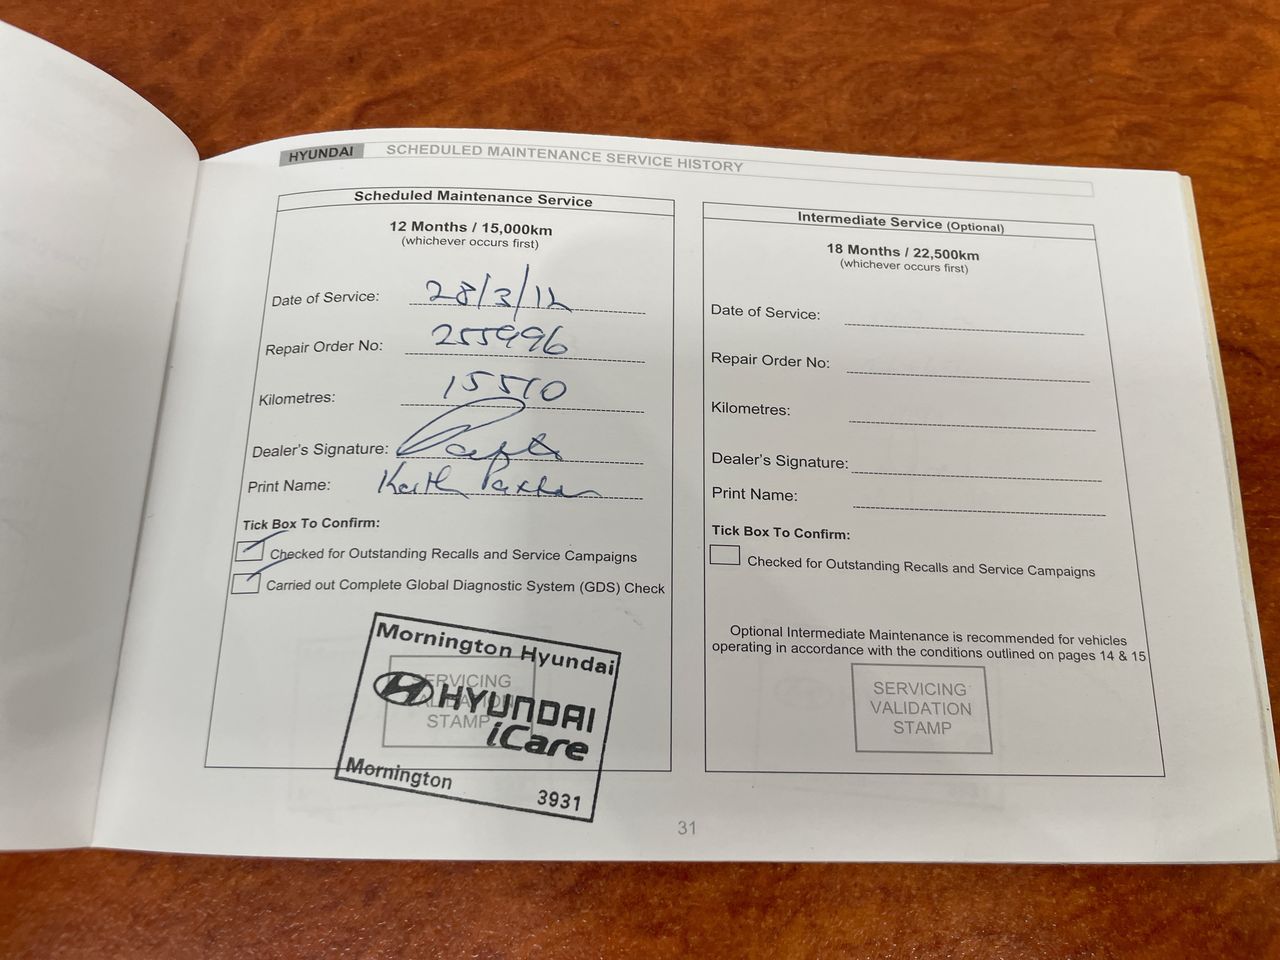 HYUNDAI SCHEDULED MAINTENANCE SERVICE HISTORY
Scheduled Maintenance Service
12 Months / 15,000km
(whichever occurs first)
Date of Service: 28/3/12
Repair Order No: 255996
Kilometres: 15510
Dealer's Signature:
Print Name: Keith Paxton
Tick Box To Confirm:
Checked for Outstanding Recalls and Service Campaigns
Carried out Complete Global Diagnostic System (GDS) Check
SERVICING
VALIDATION
STAMP
Mornington Hyundai
HYUNDAI
iCare
Mornington 3931
Intermediate Service (Optional)
18 Months / 22,500km
(whichever occurs first)
Date of Service:
Repair Order No:
Kilometres:
Dealer's Signature:
Print Name:
Tick Box To Confirm:
Checked for Outstanding Recalls and Service Campaigns
Optional Intermediate Maintenance is recommended for vehicles
operating in accordance with the conditions outlined on pages 14 & 15
SERVICING
VALIDATION
STAMP
31